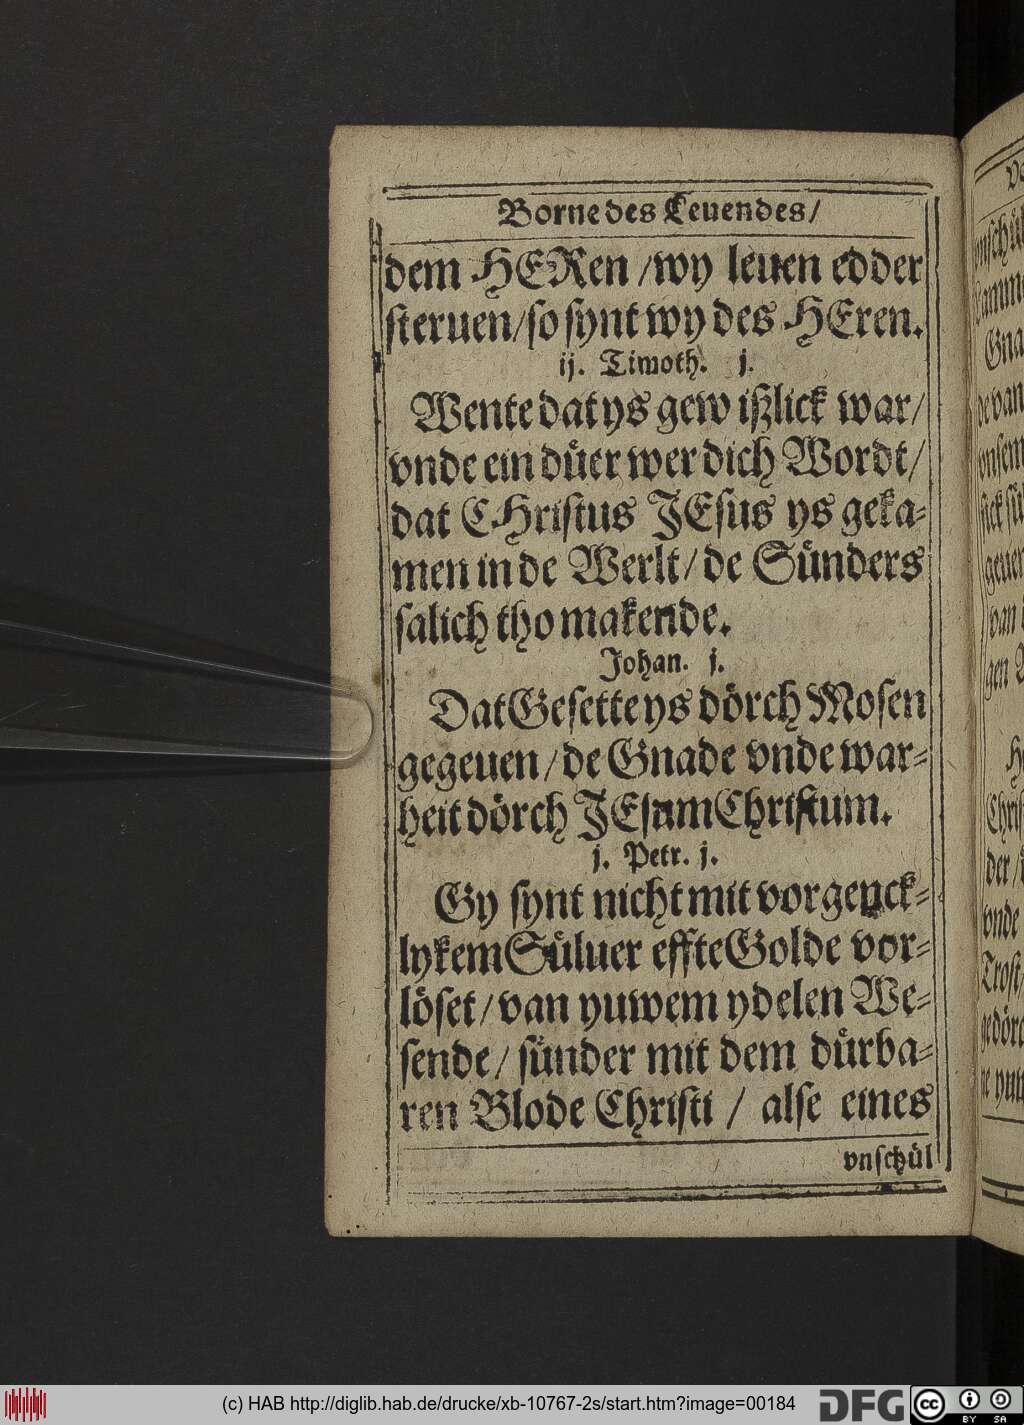 Borne des Leuendes/
dem HERen /wy leuen edder
steruen/so synt wy des HEren.
ij. Timoth. j.
Wente dat ys gew ißlick war/
vnde ein düer wer dich Wordt/
dat CHristus JEsus ys geka-
men in de Werlt/de Sünders
salich tho makende.
Johan. j.
Dat Gesette ys dörch Mosen
gegeuen/de Gnade vnde war-
heit dörch JEsum Christum.
j. Petr. j.
Gy synt nicht mit vorgenck-
lykem Süluer effte Golde vor-
löset/van yuwem ydelen We-
sende/ sünder mit dem dürba-
ren Blode Christi / alse eines
vnschül
(c) HAB http://diglib.hab.de/drucke/xb-10767-2s/start.htm?image=00184
DFG
cc
BY SA